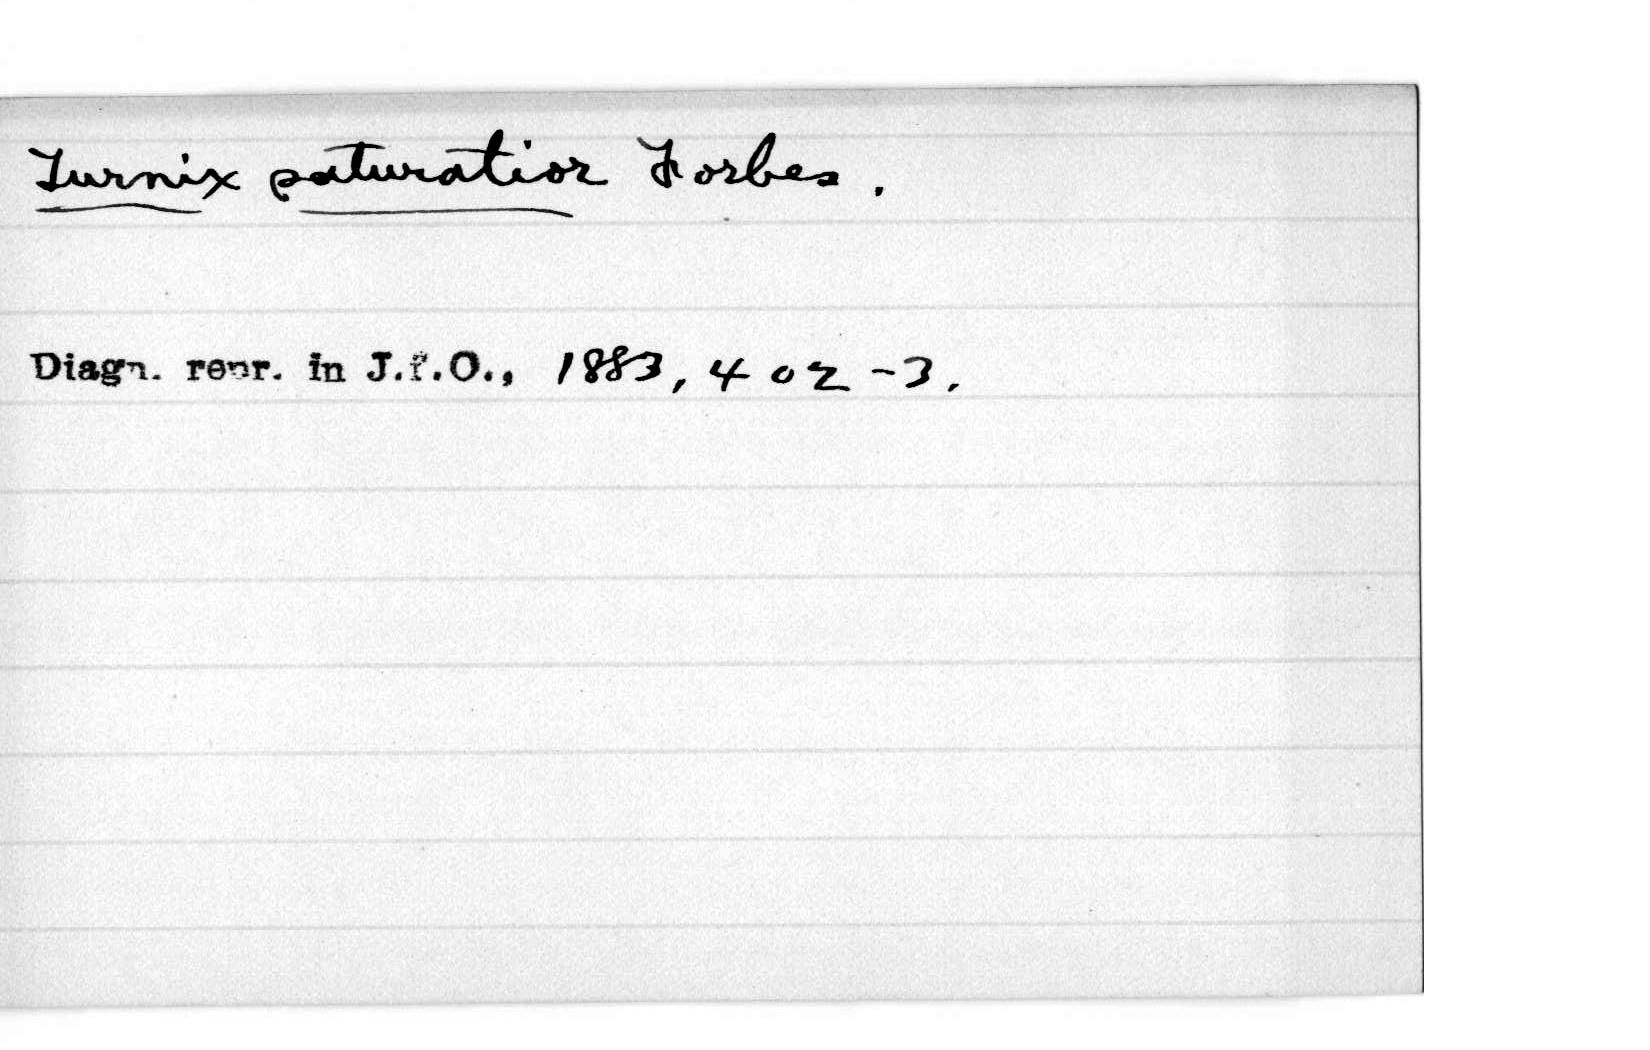 Turnix saturatior Forbes.
Diagn. repr. in J.f.O., 1883, 402-3.